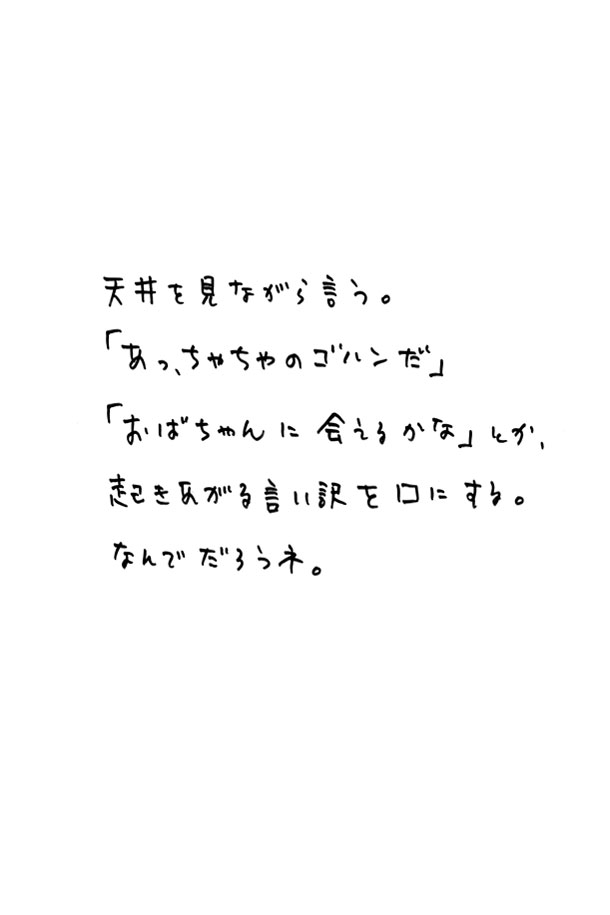 天井を見ながら言う。
「あっ、ちゃちゃのゴハンだ」
「おばちゃんに会えるかな」とか、
起きあがる言い訳を口にする。
なんでだろうネ。